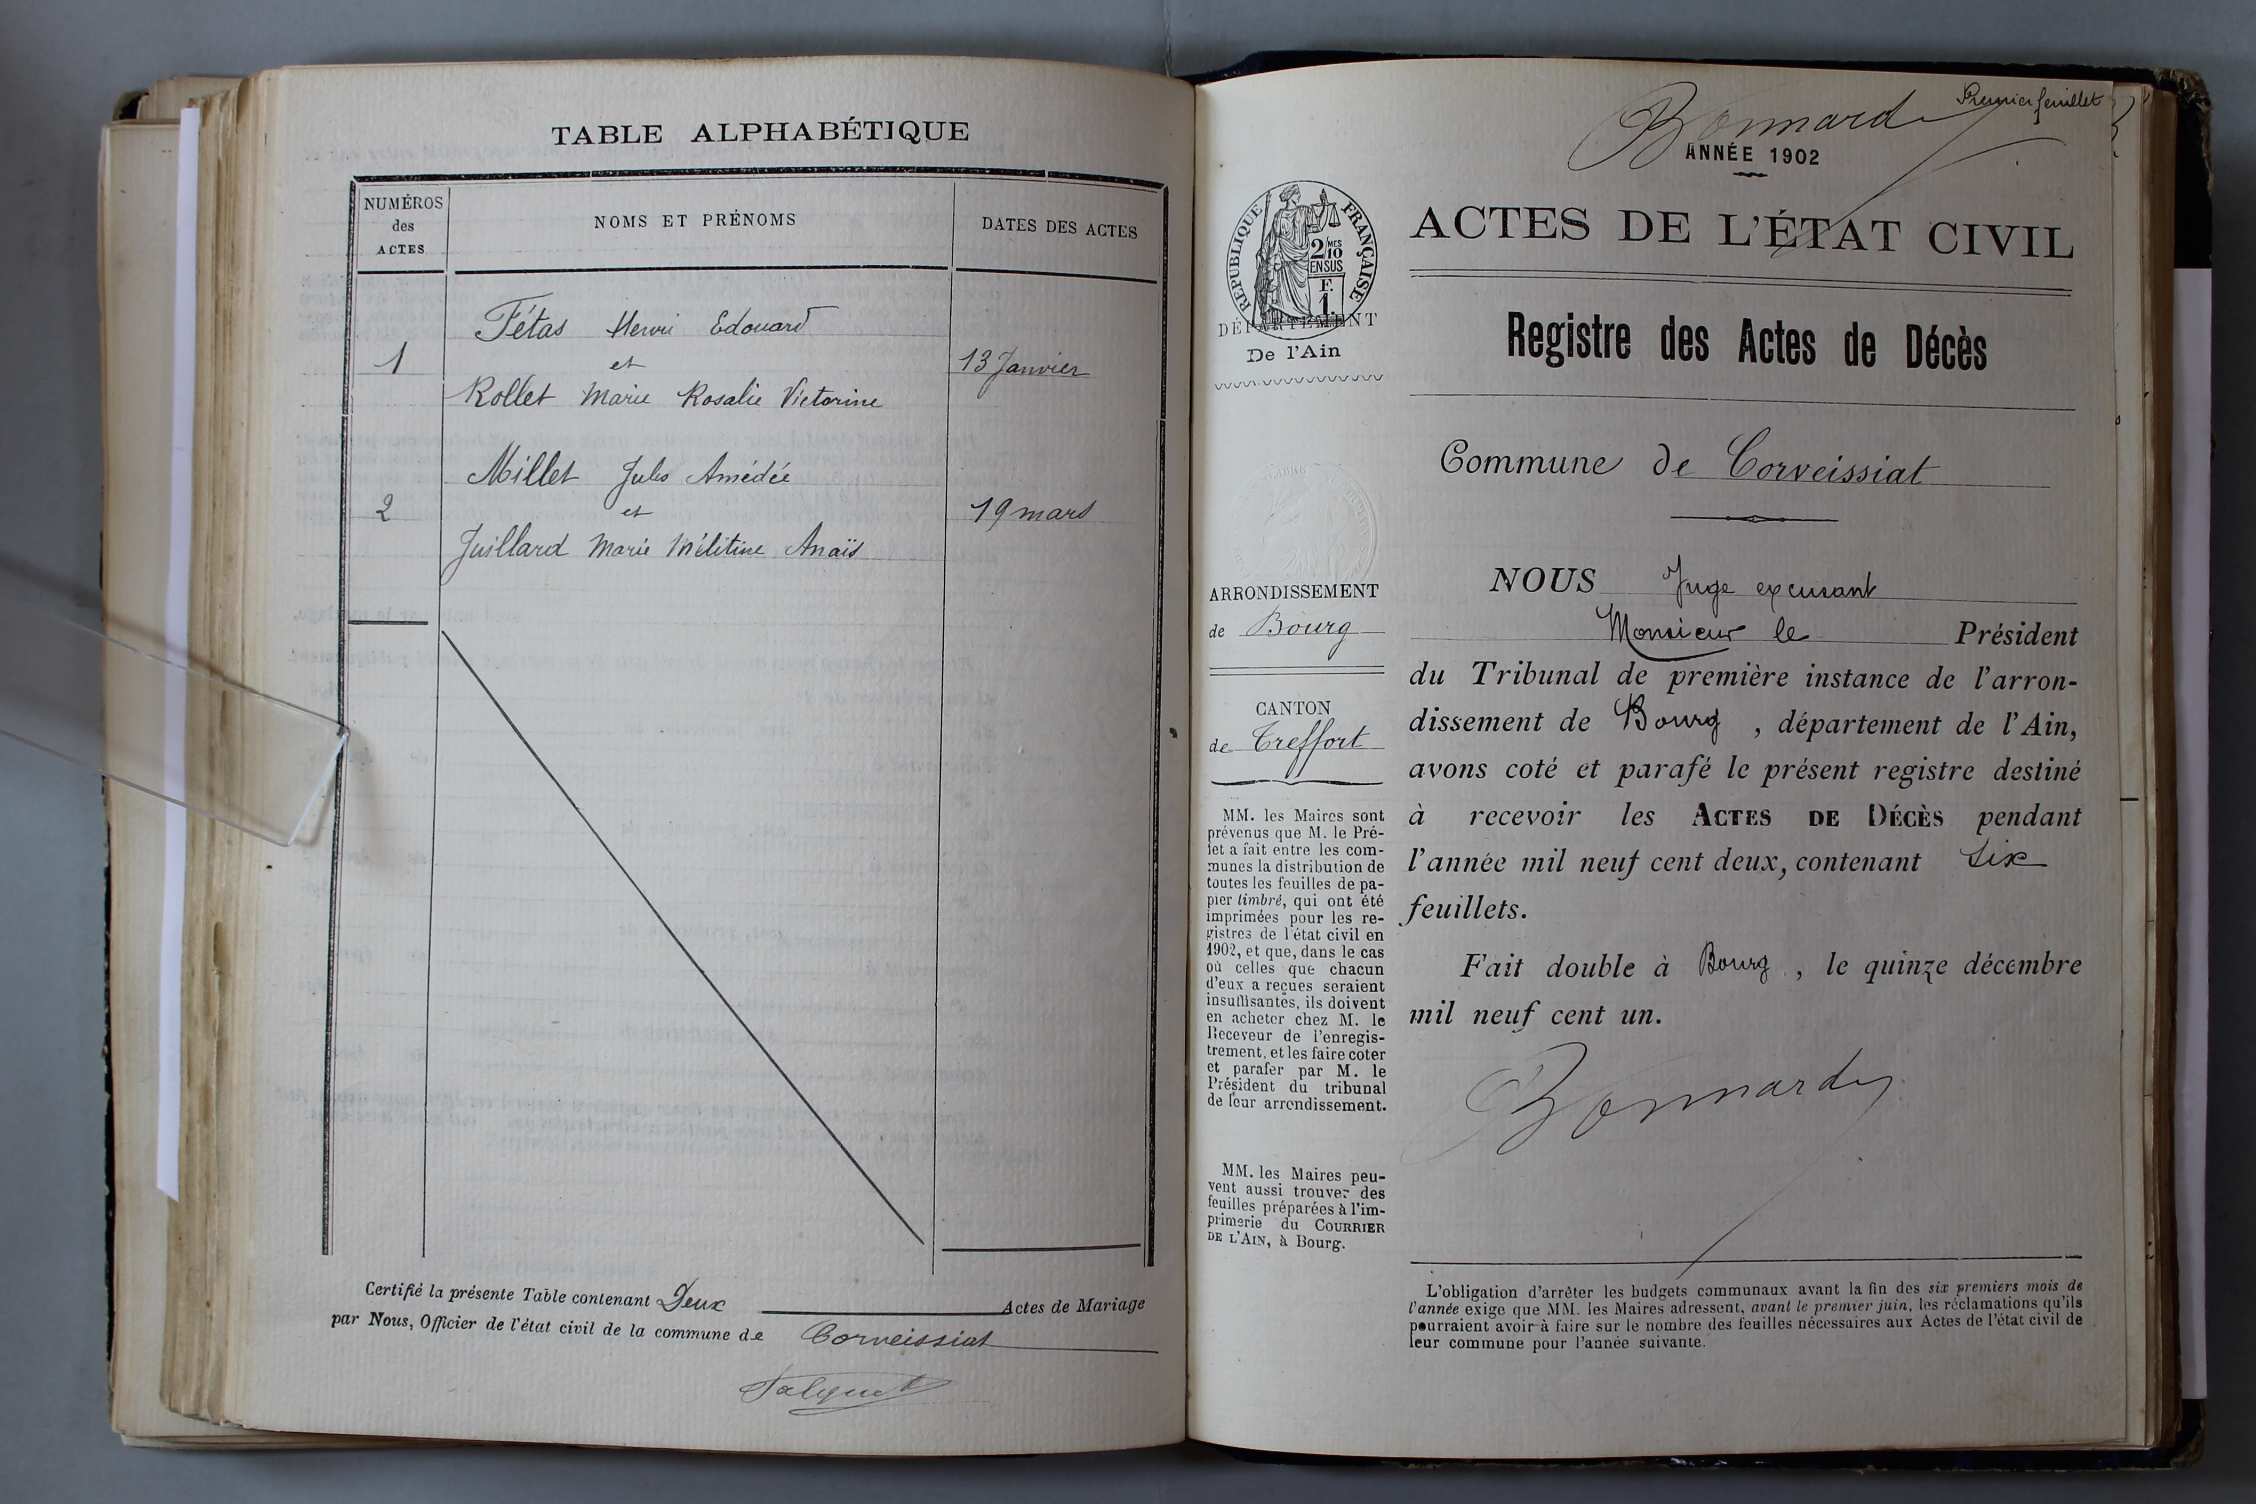 TABLE ALPHABÉTIQUE
NUMÉROS
des
ACTES
NOMS ET PRÉNOMS
DATES DES ACTES
Fétas Henri Edouard
1 et 13 Janvier
Rollet Marie Rosalie Victorine
Millet Jules Amédée
2 et 19 mars
Juillard Marie Mélitine Anaïs
Certifié la présente Table contenant Deux Actes de Mariage
par Nous, Officier de l'état civil de la commune de Corveissiat
Premier feuillet
Bonnard
ANNÉE 1902
ACTES DE L'ÉTAT CIVIL
RÉPUBLIQUE FRANÇAISE
2/10 MES
EN SUS
F.
1.
DÉPARTEMENT
De l'Ain
Registre des Actes de Décès
Commune de Corveissiat
ARRONDISSEMENT
de Bourg
CANTON
de Treffort
MM. les Maires sont
prévenus que M. le Pré-
fet a fait entre les com-
munes la distribution de
toutes les feuilles de pa-
pier timbré, qui ont été
imprimées pour les re-
gistres de l'état civil en
1902, et que, dans le cas
où celles que chacun
d'eux a reçues seraient
insuffisantes, ils doivent
en acheter chez M. le
Receveur de l'enregis-
trement, et les faire coter
et parafer par M. le
Président du tribunal
de leur arrondissement.
MM. les Maires peu-
vent aussi trouver des
feuilles préparées à l'im-
primerie du COURRIER
DE L'AIN, à Bourg.
NOUS Juge excusant
Monsieur le Président
du Tribunal de première instance de l'arron-
dissement de Bourg, département de l'Ain,
avons coté et parafé le présent registre destiné
à recevoir les ACTES DE DÉCÈS pendant
l'année mil neuf cent deux, contenant six
feuillets.
Fait double à Bourg, le quinze décembre
mil neuf cent un.
Bonnard
L'obligation d'arrêter les budgets communaux avant la fin des six premiers mois de
l'année exige que MM. les Maires adressent, avant le premier juin, les réclamations qu'ils
pourraient avoir à faire sur le nombre des feuilles nécessaires aux Actes de l'état civil de
leur commune pour l'année suivante.